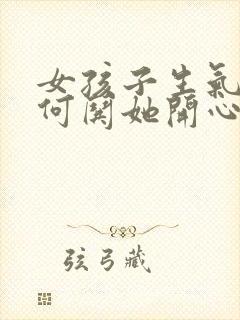 女孩子生氣
何閧她開心
弦弓藏